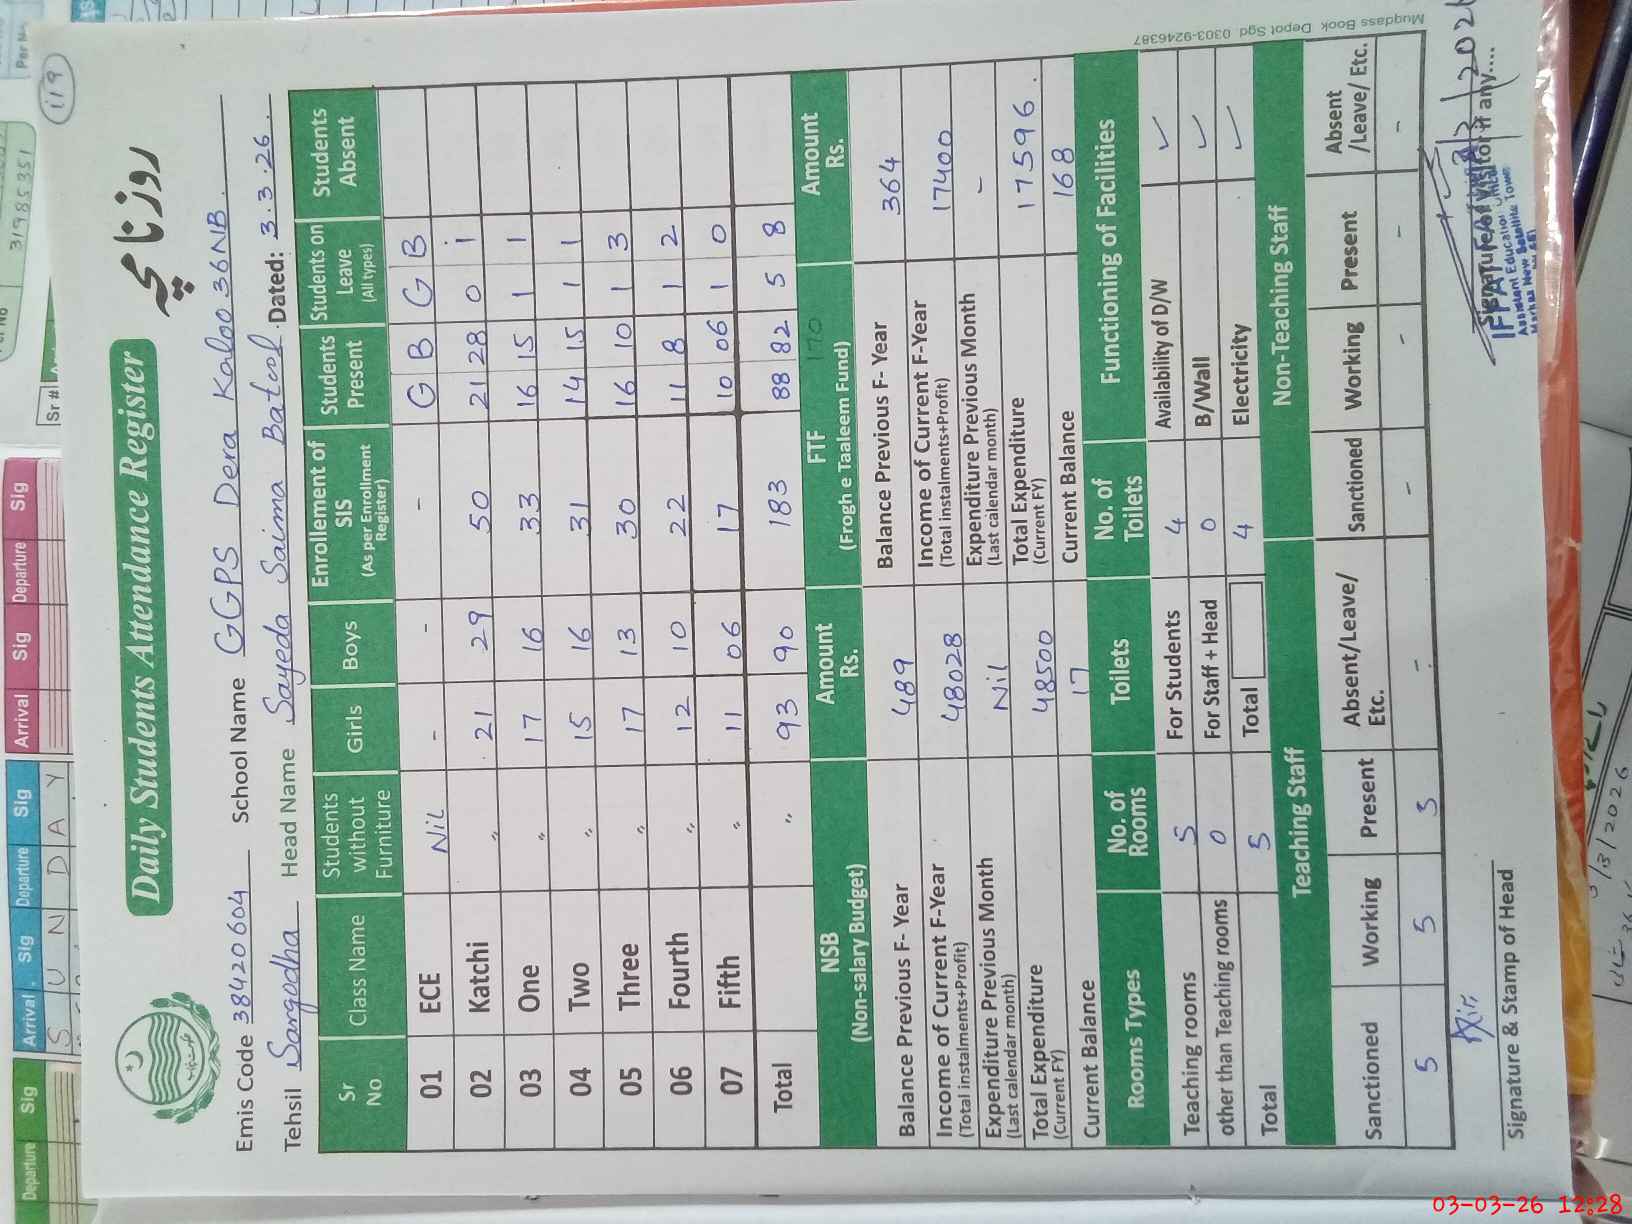 119
روزنامچہ
Daily Students Attendance Register
Emis Code 38420604 School Name GGPS Dera Kaloo 36NB.
Tehsil Sargodha Head Name Sayeda Saima Batool. Dated: 3.3.26.
Sr No Class Name Students without Furniture Girls Boys Enrollement of SIS (As per Enrollment Register) Students Present Students on Leave (All types) Students Absent
G B G B
01 ECE Nil - - -
02 Katchi " 21 29 50 21 28 0 1
03 One " 17 16 33 16 15 1 1
04 Two " 15 16 31 14 15 1 1
05 Three " 17 13 30 16 10 1 3
06 Fourth " 12 10 22 11 8 1 2
07 Fifth " 11 06 17 10 06 1 0
Total " 93 90 183 88 82 5 8
170
NSB (Non-salary Budget) Amount Rs. FTF (Frogh e Taaleem Fund) Amount Rs.
Balance Previous F- Year 489 Balance Previous F- Year 364
Income of Current F-Year (Total instalments+Profit) 48028 Income of Current F-Year (Total instalments+Profit) 17400
Expenditure Previous Month (Last calendar month) Nil Expenditure Previous Month (Last calendar month) -
Total Expenditure (Current FY) 48500 Total Expenditure (Current FY) 17596.
Current Balance 17 Current Balance 168
Rooms Types No. of Rooms Toilets No. of Toilets Functioning of Facilities
Teaching rooms 5 For Students 4 Availability of D/W ✓
other than Teaching rooms 0 For Staff + Head 0 B/Wall ✓
Total 5 Total 4 Electricity ✓
Teaching Staff Non-Teaching Staff
Sanctioned Working Present Absent/Leave/ Etc. Sanctioned Working Present Absent /Leave/ Etc.
5 5 5 - - - - -
Signature & Stamp of Head
Signature of Visitor if any....
Assistant Education
Muqdass Book Depot Sgd 0303-9246387
Departure Sig Arrival Sig Departure Sig Arrival Sig Departure Sig
SUNDAY
Sr #
31985351
03-03-26 12:28